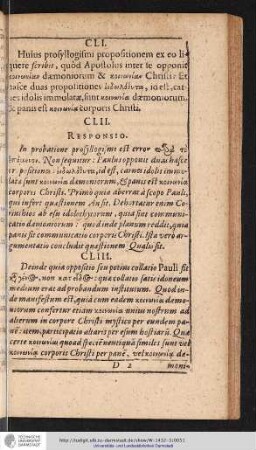 CLI.
Huius prosyllogismi propositionem ex eo li-
quere scribis, quòd Apostolus inter se opponit
κοινωνίαν dæmoniorum & κοινωνίαν Christi: Et
hasce duas propositiones εἰδωλόθυτα, id est, car-
nes idolis immolatæ, sunt κοινωνία dæmoniorum.
& panis est κοινωνία corporis Christi.
CLII.
RESPONSIO.
In probatione prosyllogismi est error
Non sequitur: Paulus opponit duas hasce
propositiones: εἰδωλόθυτα, id est, carnes idolis immo-
latæ sunt κοινωνία dæmoniorum, & panis est κοινωνία
corporis Christi. Primò quia aberrat à scopo Pauli,
qui infert quæstionem An sit. Dehortatur enim Co-
rinthios ab esu idolothytorum, quia sint communi-
catio dæmoniorum: quod inde planum reddit, quia
panis sit communicatio corporis Christi. Ista verò ar-
gumentatio concludit quæstionem Qualis sit.
CLIII.
Deinde quia oppositio seu potius collatio Pauli sit
non κατ' quia collatu satis idoneum
medium erat ad probandum institutum. Quod in-
de manifestum est, quia cum eadem κοινωνία dæmo-
niorum confertur etiam κοινωνία unius nostrum ad
alterum in corpore Christi mystico per eundem pa-
nē: item, participatio altaris per esum hostiarū. Quæ
certè κοινωνία quod specie nentiquā similis sunt vel
κοινωνία corporis Christi per panē, vel κοινωνία dæ-
D 2
moni-
TECHNISCHE
UNIVERSITÄT
DARMSTADT
Universitäts- und Landesbibliothek Darmstadt